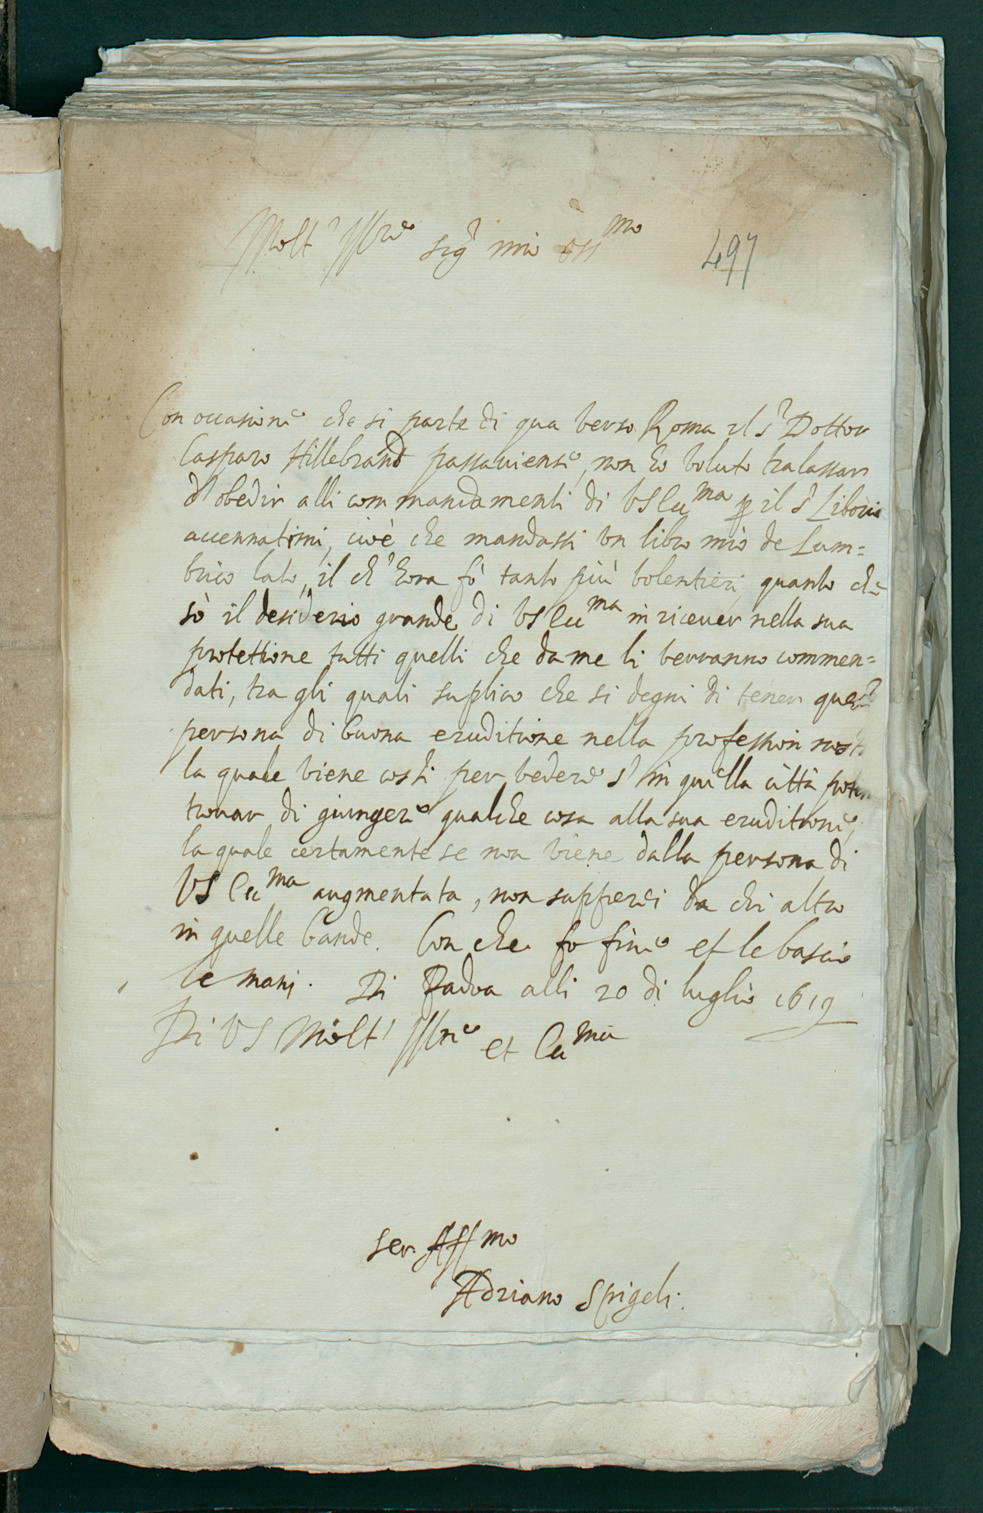 Molt' Ill.re sig.r mio oss.mo
497
Con occasione che si parte di qua verso Roma il s.r Dottor
Casparo Hillebrand passaviense, non ho voluto tralassar
d'obedir alli commandamenti di VS Ecc.ma per il s.r Liborio
accennatimi, cioè che mandassi un libro mio de Lum=
brico lato, il ch'hora fò tanto più volentieri, quanto che
sò il desiderio grande di VS Ecc.ma in ricever nella sua
protettione tutti quelli che da me li verranno commen=
dati, tra gli quali suplico che si degni di tener questa
persona di buona eruditione nella profession nostra
la quale viene costì per vedere s' in quella città potrà
trovar di giungere qualche cosa alla sua eruditione,
la quale certamente se non viene dalla persona di
VS Ecc.ma augmentata, non sapperei da chi altro
in quelle bande. Con che fo fine et le bascio
le mani. Di Padva alli 20 di luglio 1619
Di VS Molt' Ill.re et Ecc.ma
ser. Aff.mo
Adriano Spigeli.